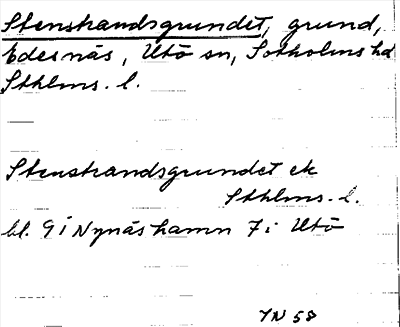 Stenstrandsgrundet, grund,
Edesnäs, Utö sn, Sotholms hd
Sthlms. l.
Stenstrandsgrundet ek
Sthlms. l.
bl. 9 i Nynäshamn 7 i Utö
YN 58